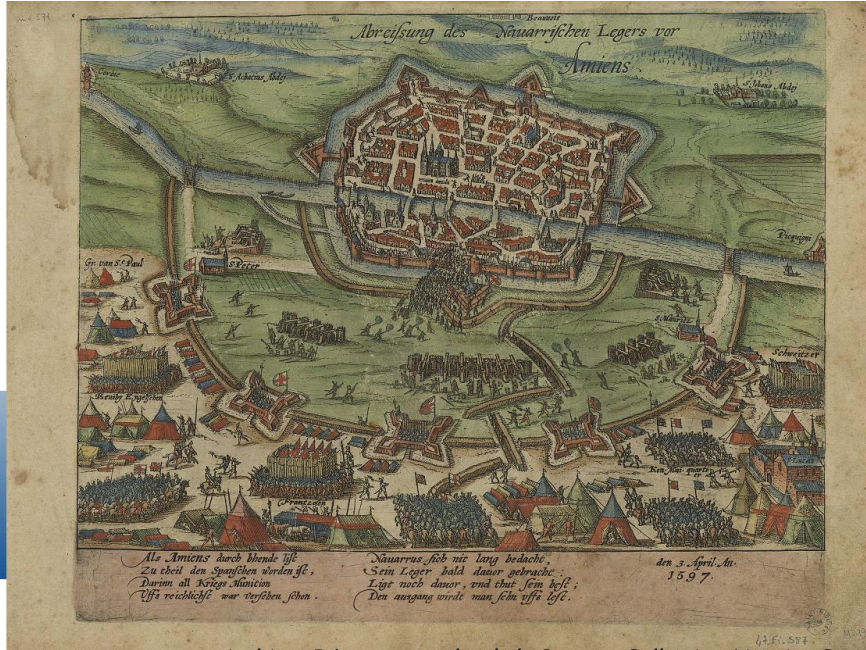 Beauuais
Abreissung des Nauarrischen Legers vor
Amiens
Corbie
S. Achatius Abdej
S. Johans Abdej
Picquigni
Gr. van S.t Paul
S. Peter
S. Maurits
Schweitzer
Engelschen
Frantzosen
Kon. Mai. quartir
Als Amiens durch bhende list
Zu theil den Spanschen worden ist,
Darinn all Kriegs Munition
Uffs reichlichst war versehen schon.
Nauarrus sich nit lang bedacht,
Sein Leger bald dauor gebracht:
Ligt noch dauor, vnd thut sein best;
Den ausgang wirdt man sehn vffs lest.
den 3 April. An.
1597.